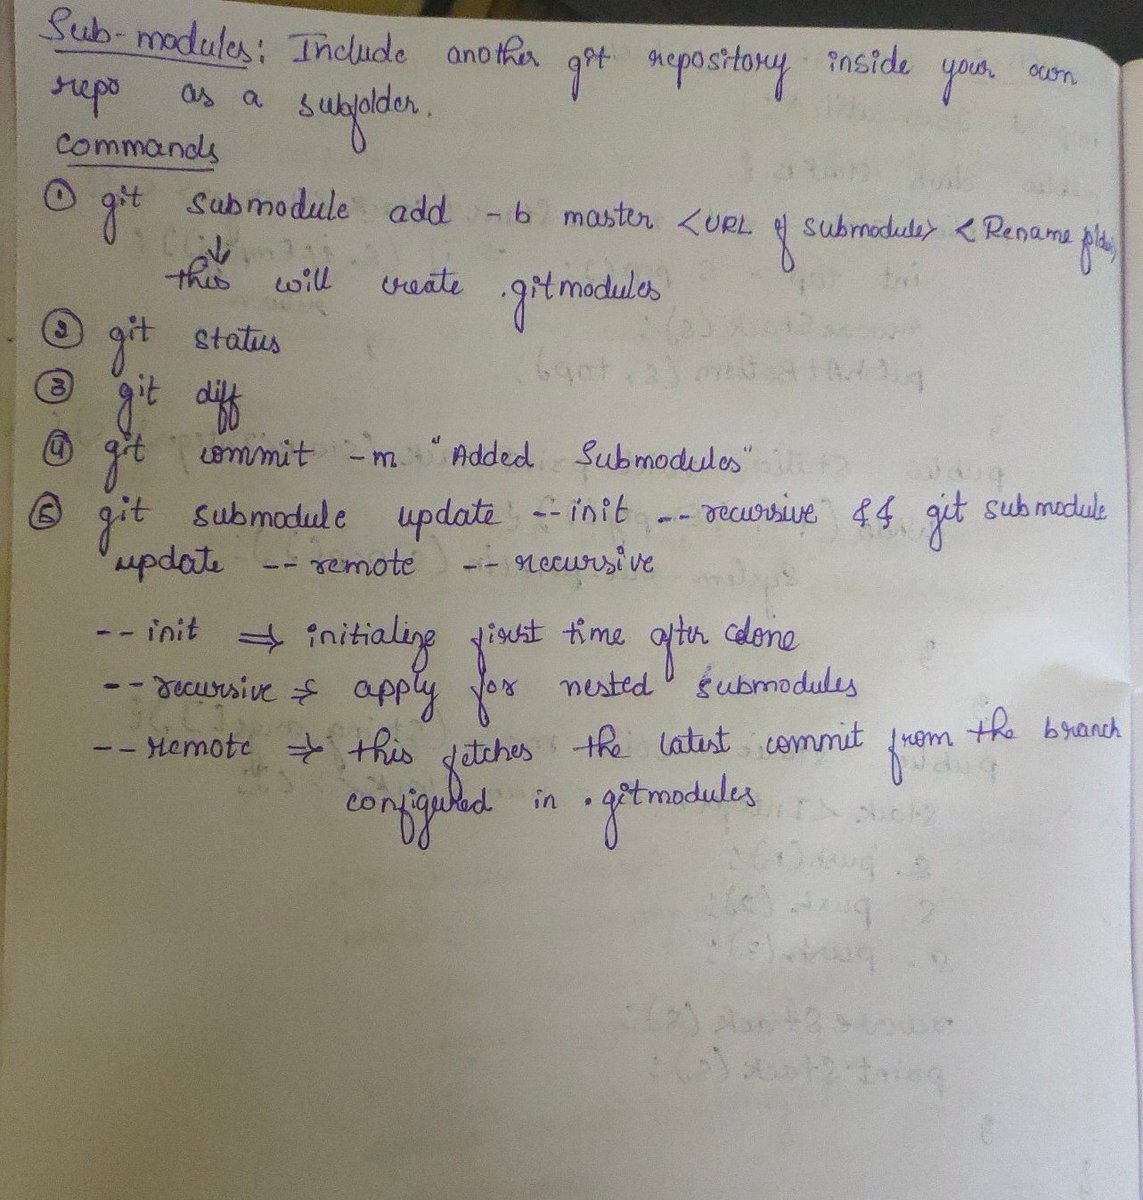 Sub-modules: Include another git repository inside your own
repo as a subfolder.
Commands
① git submodule add -b master <URL of submodule> <Rename
↓
this will create .gitmodules
② git status
③ git diff
④ git commit -m "Added Submodules"
⑤ git submodule update --init --recursive && git submodule
update --remote --recursive
--init ⇒ initialize first time after clone
--recursive ⇒ apply for nested submodules
--remote ⇒ this fetches the latest commit from the branch
configured in .gitmodules